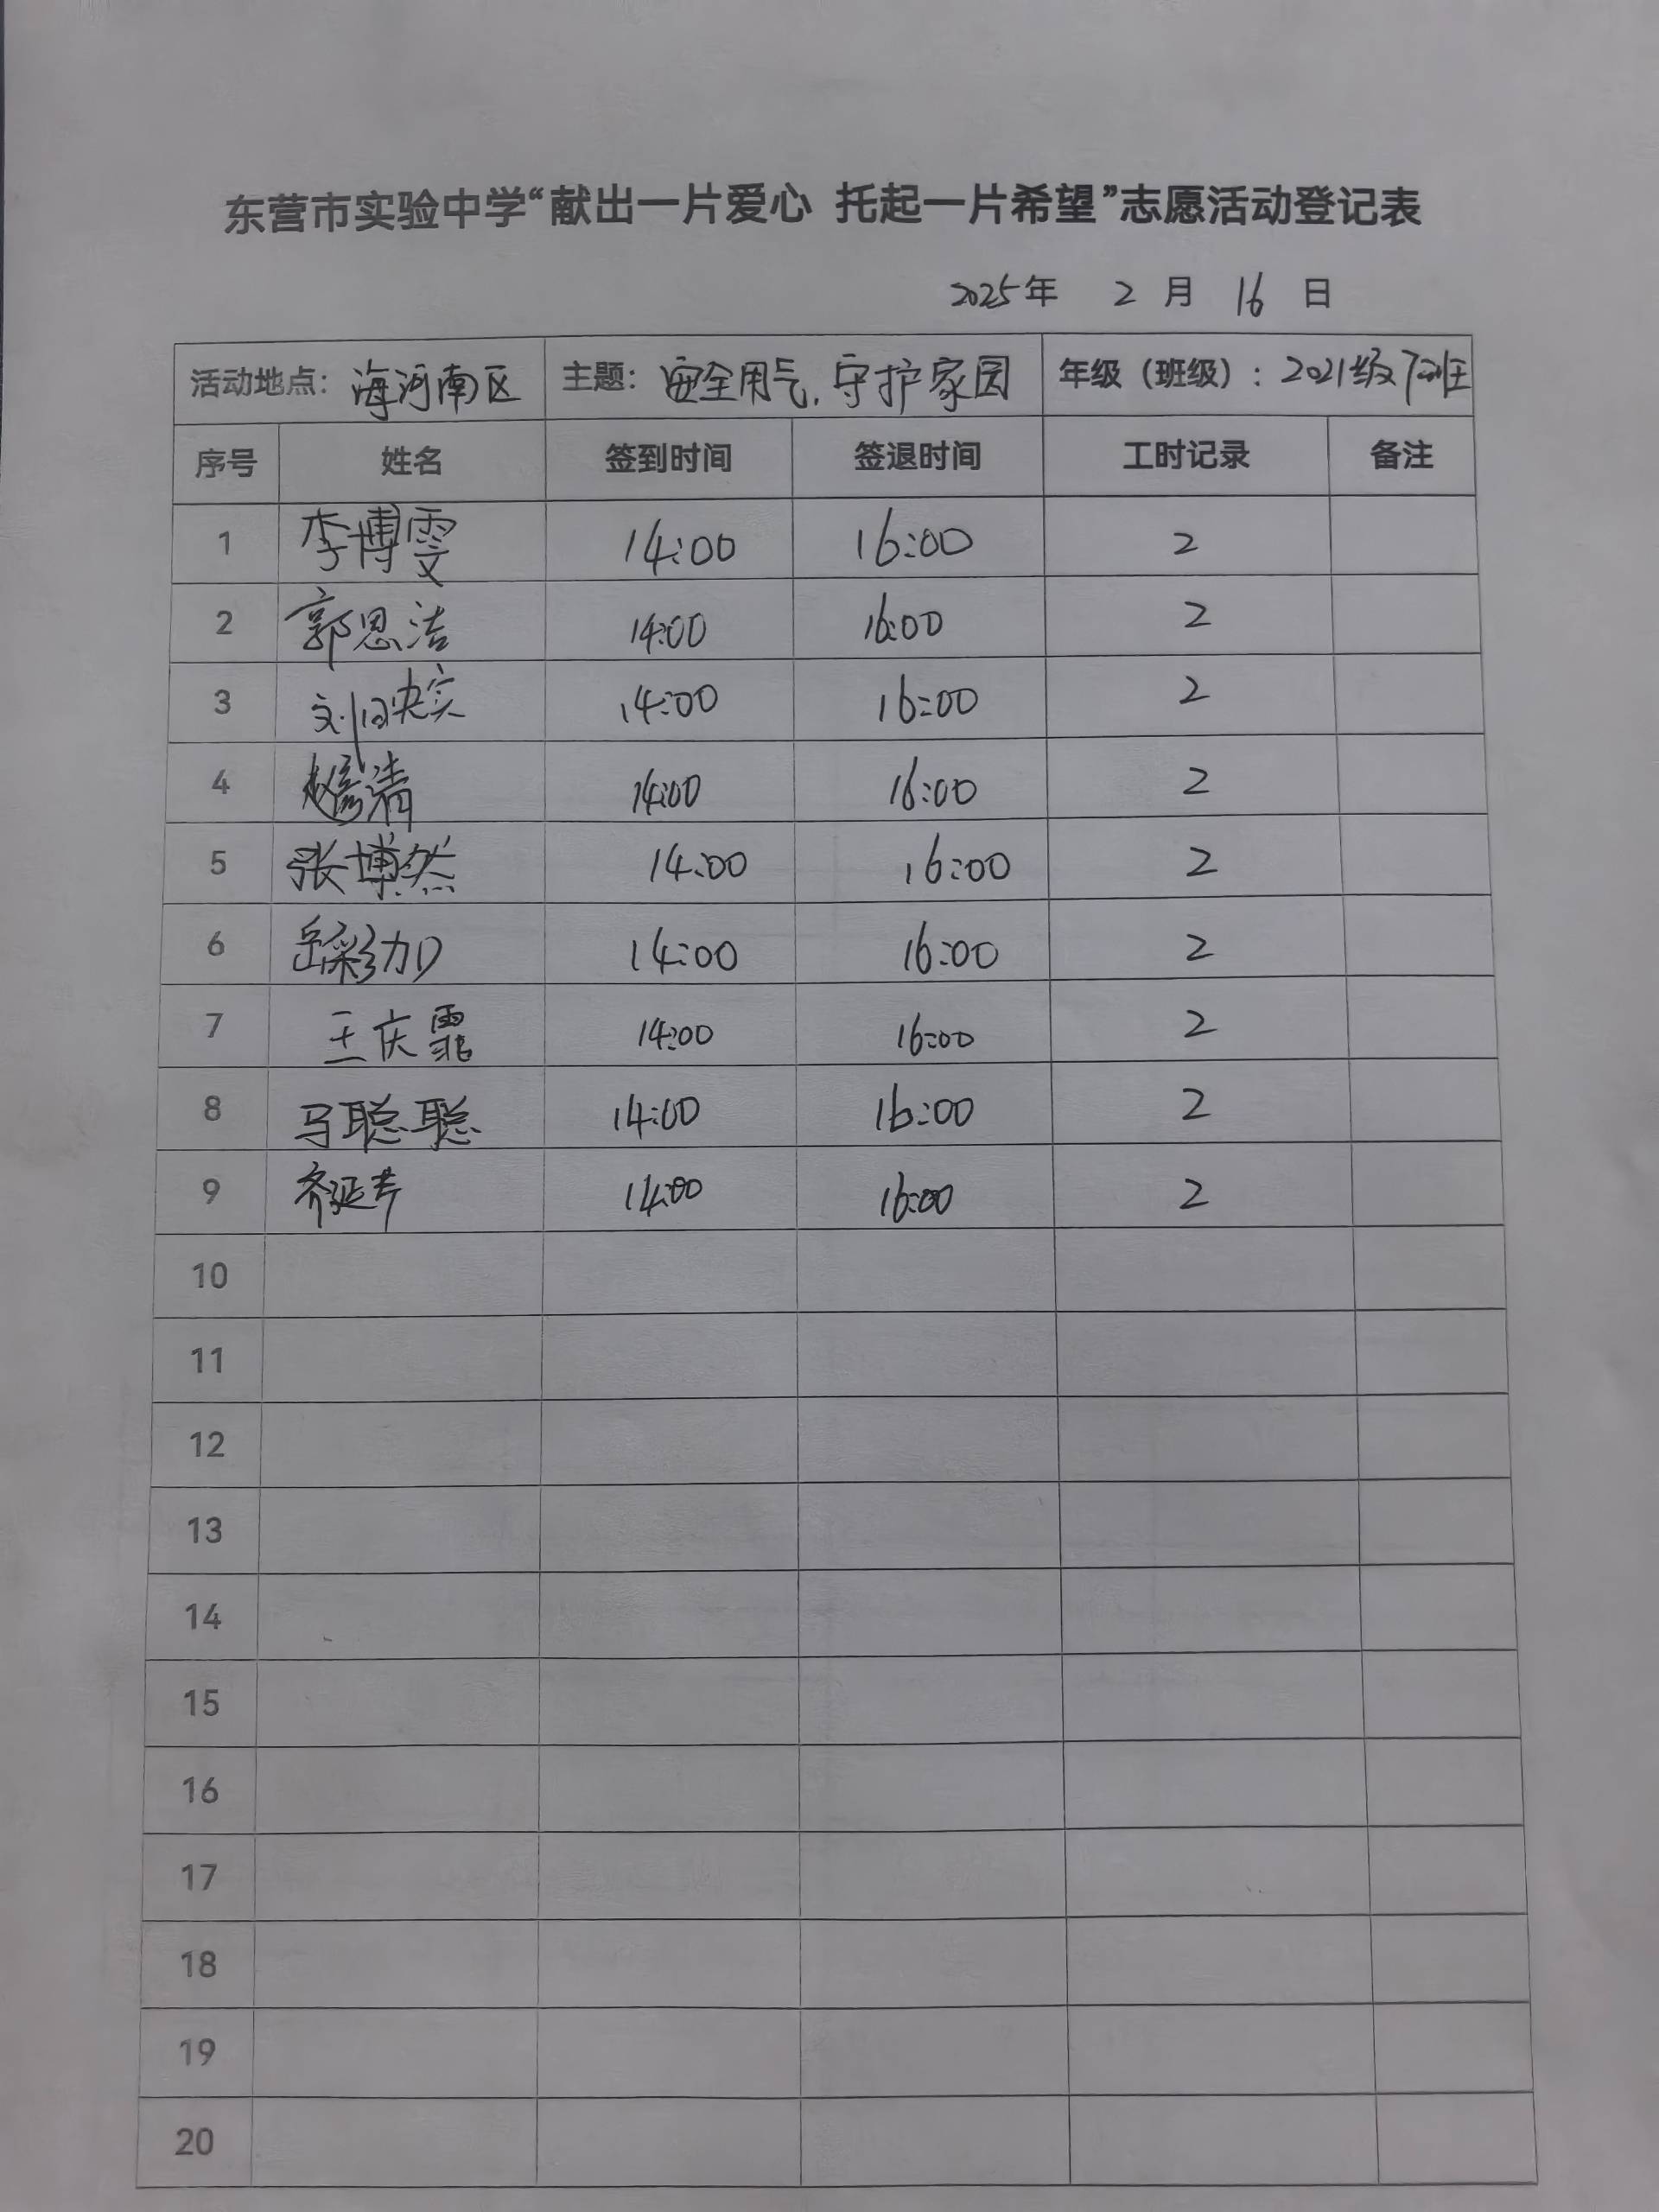 东营市实验中学“献出一片爱心 托起一片希望”志愿活动登记表
2025年 2 月 16 日
活动地点：海河南区 主题：安全用气，守护家园 年级（班级）：2021级7班
序号 姓名 签到时间 签退时间 工时记录 备注
1 李博雯 14:00 16:00 2
2 郭思洁 14:00 16:00 2
3 14:00 16:00 2
4 赵彦清 14:00 16:00 2
5 张博然 14:00 16:00 2
6 岳彩加 14:00 16:00 2
7 王庆霏 14:00 16:00 2
8 马聪聪 14:00 16:00 2
9 齐延芹 14:00 16:00 2
10
11
12
13
14
15
16
17
18
19
20